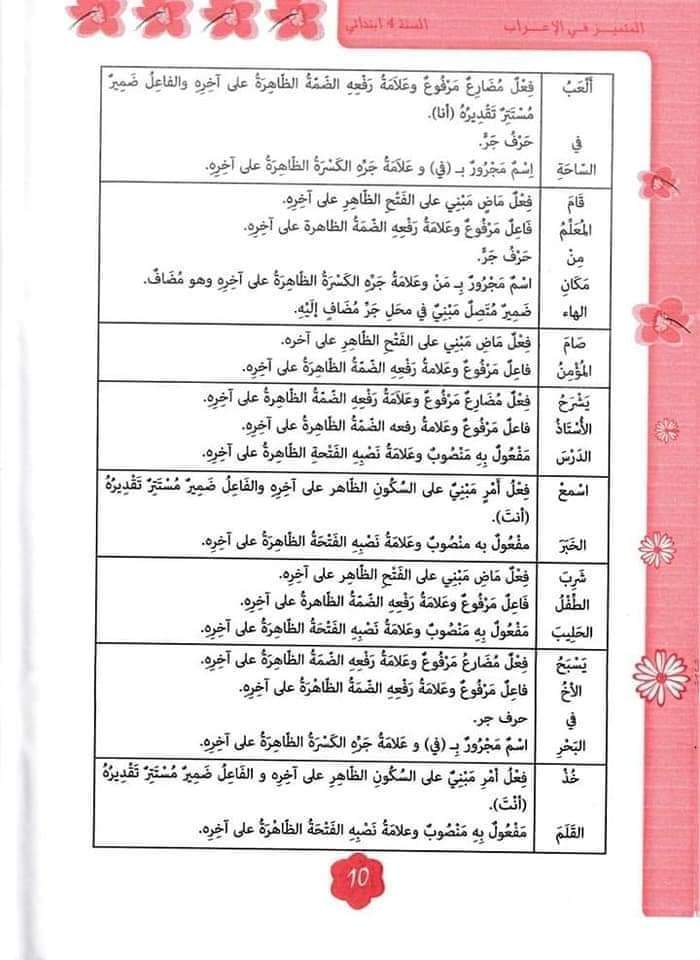 المتميز في الإعراب
السنة 4 ابتدائي
أَلْعَبُ فِعْلٌ مُضَارِعٌ مَرْفُوعٌ وعَلاَمَةُ رَفْعِهِ الضَمّةُ الظّاهِرَةُ على آخِرِهِ والفاعِلُ ضَمِيرٌ
مُسْتَتِرٌ تَقْدِيرُهُ (أنا).
في حَرْفُ جَرٍّ.
السّاحَةِ اِسْمٌ مَجْرُورٌ بِـ (في) و عَلاَمَةُ جَرِّهِ الكَسْرَةُ الظّاهِرَةُ على آخِرِهِ.
قَامَ فِعْلٌ مَاضٍ مَبْنِي على الفَتْحِ الظّاهِرِ على آخِرِهِ.
المُعَلِّمُ فَاعِلٌ مَرْفُوعٌ وعَلاَمَةُ رَفْعِهِ الضّمّةُ الظاهرة على آخِرِهِ.
مِنْ حَرْفُ جَرٍّ.
مَكَانِ اسْمٌ مَجْرُورٌ بِـ مَنْ وعَلاَمَةُ جَرِّهِ الكَسْرَةُ الظّاهِرَةُ على آخِرِهِ وهو مُضَافٌ.
الهاء ضَمِيرٌ مُتّصِلٌ مَبْنِيٌ في محَلِ جَرٍّ مُضَافٍ إلَيْهِ.
صَامَ فِعْلٌ مَاضٍ مَبْنِي على الفَتْحِ الظّاهِرِ على آخره.
المُؤْمِنُ فاعِلٌ مَرْفُوعٌ وعَلامةُ رَفْعِهِ الضّمّةُ الظّاهِرَةُ على آخِرِهِ.
يَشْرَحُ فِعْلٌ مُضَارِعٌ مَرْفُوعٌ وعَلاَمَةُ رَفْعِهِ الضّمّةُ الظّاهِرةُ على آخِرِهِ.
الأُسْتَاذُ فاعِلٌ مَرْفُوعٌ وعَلامة رفعه الضّمّةُ الظّاهِرَةُ على آخِرِهِ.
الدَرْسَ مَفْعُولٌ بِهِ مَنْصُوبٌ وعَلاَمَةُ نَصْبِهِ الفَتْحةِ الظّاهِرَةُ على آخِرِهِ.
اسْمعْ فِعْلُ أمْرٍ مَبْنِيٌ على السُكُونِ الظّاهر على آخِرِهِ والفَاعِلُ ضَمِيرٌ مُسْتَتِرٌ تَقْدِيرُهُ
(أنتَ).
الخَبَرَ مفْعُولٌ به منْصُوبٌ وعَلامَةُ نَصْبِهِ الفَتْحَةُ الظّاهِرَةُ على آخِرِهِ.
شَرِبَ فِعْلٌ مَاضٍ مَبْنِي على الفَتْحِ الظّاهِر على آخِرِهِ.
الطِّفْلُ فَاعِلٌ مَرْفُوعٌ وعَلاَمَةُ رَفْعِهِ الضّمّةُ الظّاهرةُ على آخِرِهِ.
الحَلِيبَ مَفْعُولٌ بِهِ مَنْصُوبٌ وعَلاَمَةُ نَصْبِهِ الفَتْحَةُ الظّاهِرَةُ على آخِرِهِ.
يَسْبَحُ فِعْلٌ مُضَارِعُ مَرْفُوعٌ وعَلاَمَةُ رَفْعِهِ الضّمّةُ الظّاهِرَةُ على آخِرِهِ.
الأخُ فاعِلٌ مَرْفُوعٌ وعَلاَمَةُ رَفْعِهِ الضَمّةُ الظّاهْرَةُ على آخِرِهِ.
في حرف جر.
البَحْرِ اسْمٌ مَجْرُورٌ بِـ (في) و عَلاَمَةُ جَرِّهِ الكَسْرَةُ الظّاهِرَةُ على آخِرِهِ.
خُذْ فِعْلُ أمْرٍ مَبْنِيٌ على السُكُونِ الظّاهِرِ على آخِرِهِ و الفَاعِلُ ضَمِيرٌ مُسْتَتِرٌ تَقْدِيرُهُ
(أنْتَ).
القَلَمَ مَفْعُولٌ بِهِ مَنْصُوبٌ وعلامَةُ نَصْبِهِ الفَتْحَةُ الظّاهْرَةُ على آخِرِهِ.
10